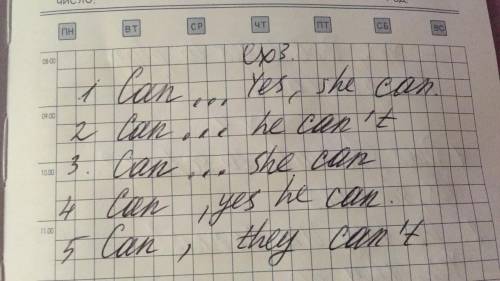 ЧИСЛО:
ГОД
ПН ВТ СР ЧТ ПТ СБ ВС
08:00
1 Can ... Yes, she can.
09.00
2 Can ... he can't
3. Can ... she can
10.00
4 Can , yes he can.
11.00
5 Can , they can't